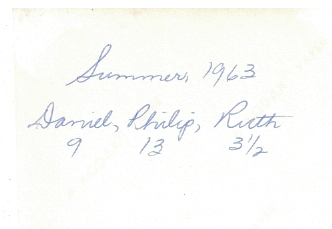 Summer, 1963
Daniel, Philip, Ruth
9 13 3½